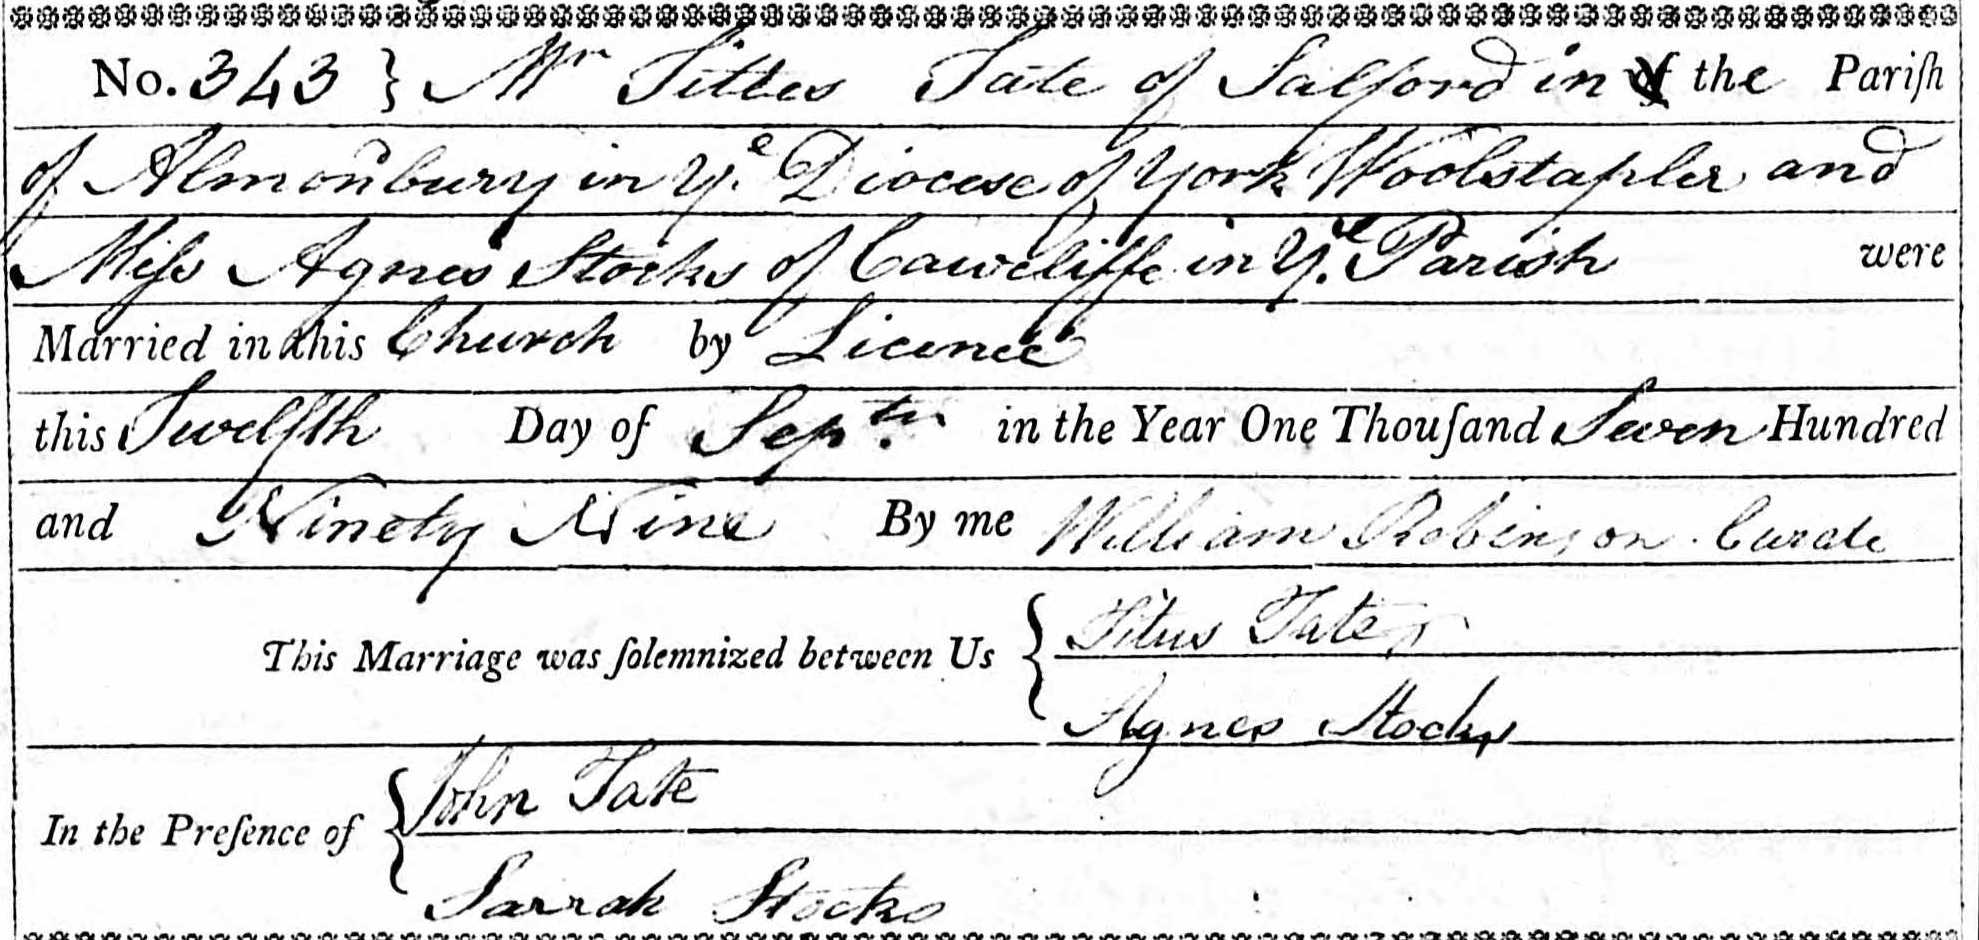 No. 343 } Mr Tittes Tate of Salford in of the Pariſh
of Almondbury in Ye. Diocese of York Woolstapler and
Miſs Agnes Stocks of Cawcliffe in Ye. Parish were
Married in this Church by Licence
this Twelfth Day of Septr. in the Year One Thouſand Seven Hundred
and Ninety Nine By me William Robinson Curate
This Marriage was ſolemnized between Us { Titus Tate
Agnes Stocks
In the Preſence of { John Tate
Sarrah Stocks